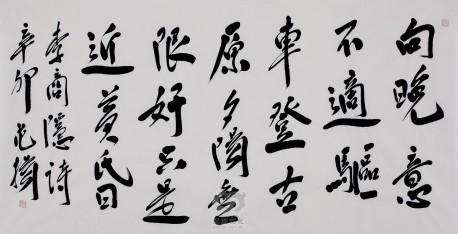 向晚意
不適驅
車登古
原夕陽無
限好只是
近黃昏
李商隱詩
辛卯